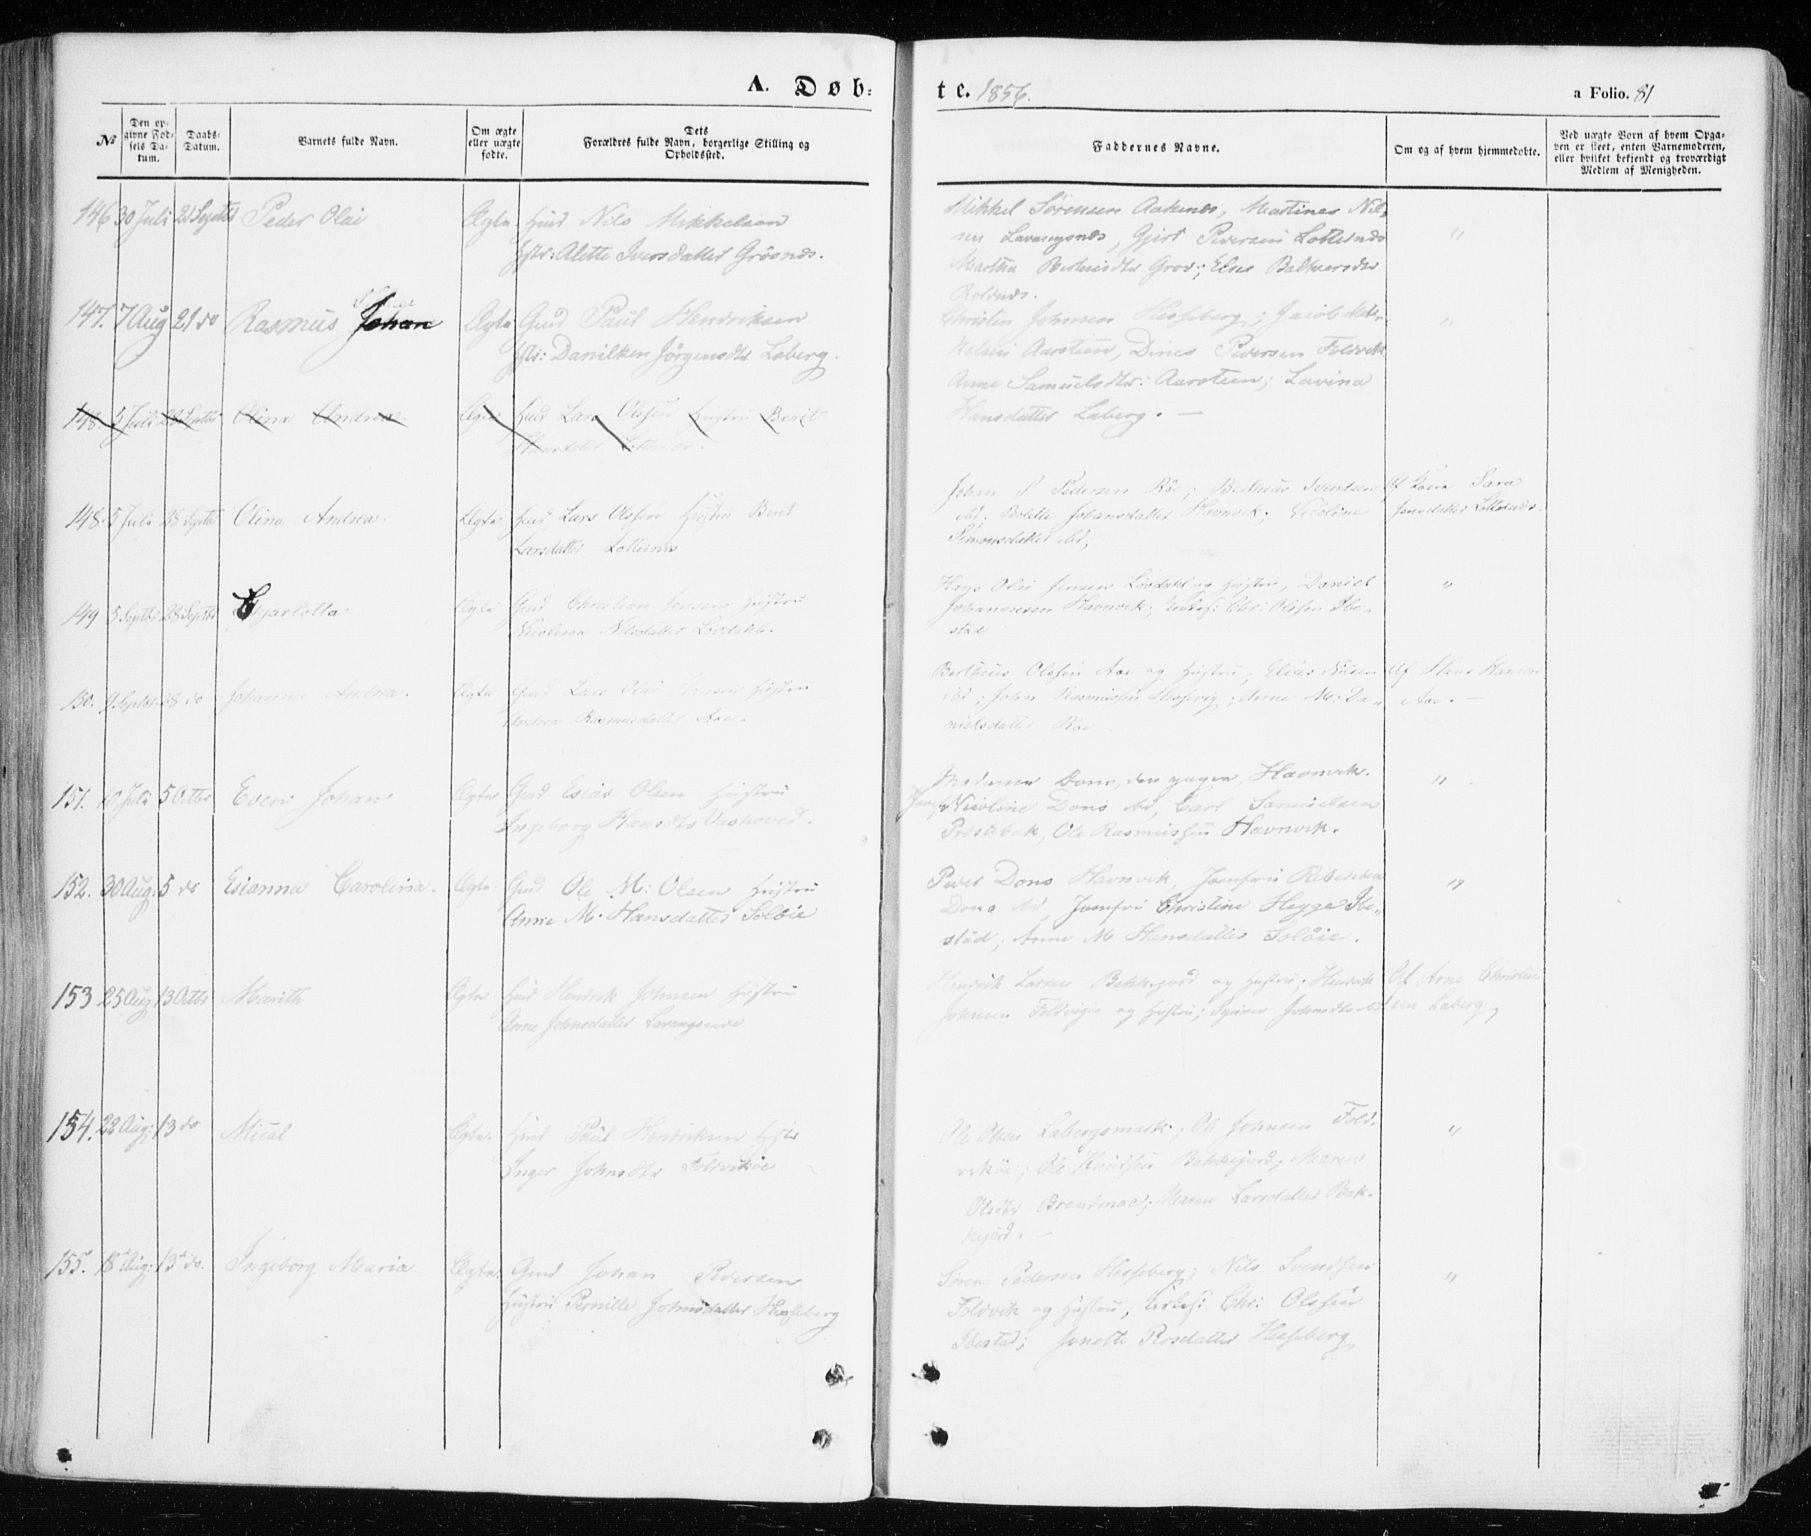 A. Døb-
te. 1856.
a Folio. 81
No
Den opgivne Fødsels Datum.
Daabs-Datum.
Barnets fulde Navn.
Om ægte eller uægte fødte.
Dets Forældres fulde Navn, borgerlige Stilling og Opholdssted.
Faddernes Navne.
Om og af hvem hjemmedøbte.
Ved uægte Børn af hvem Opgaven er skeet, enten Barnemoderen, eller hvilket bekjendt og troværdigt Medlem af Menigheden.
146 30 Juli 21 Septbr Peder Olai Ægte Huusmd Nils Mikkelsen
Hstr: Alette Iversdatter Grösnds.
Mikkel Sörensen Aakenes, Martines Nil-
sen Lavangsnds, Gjert Pedersen Lotternds
Martha Berthusdtr Grov; Elen
Rolsnds.
"
147. 7 Aug 21 do Rasmus Johan Ægte Gmd Paul Hendriksen
Hstr: Danilken Jörgensdtr Laberg.
Christen Johnsen Hesseberg; Jacob Mik-
kelsen Aarsteen, Dines Pedersen Foldvik
Anne Samuelsdtr: Aarsteen; Lavina
Hansdatter Laberg. —
"
148. 5 Juli 28 Septbr Olina Andrea Ægte Huusmd Lars Olssen Hustru Berit
Hansdatter Lotternes.
148. 5 Juli 28 Septbr Olina Andrea. Ægte Huusmd Lars Olssen Hustru Berit
Larsdatter Lotternes
Johan P Pedersen Röe; Bertheus Svendsen
ibd; Bolette Johansdatter Havnvik; Nicoline
Simonsdatter ibd;
Af Sara
Jensdatter Lotternds.
149 5 Septbr 28 Septbr Charlotta Ægte Gmd Christian Jensen Hustru
Nicolina Nilsdatter Lövdahl.
Hans Olai Jensen Lövdahl og Hustru, Daniel
Johannesen Havnvik; Kirkes: Chr: Olssen Ibe-
stad
"
150. 9 Septbr 28 do Johanna Andrea. Ægte Gmd Lars Olai Hansen Hustru
Andrea Rasmusdatter Aae.
Bertheus Olssen Aae og Hustru; Elias Nilsen
ibd; John Rasmussen Hessevig; Anne M: Da-
nielsdatter Röe
Af Hans Hansen
Aae. —
151. 10 Juli 5 Octbr Even Johan Ægte Gmd Esaias Olsen Hustru
Ingeborg Hansdtr Vashoved.
Madame Dons, den yngre, Havnvik.
Jomfr. Nicoline Dons ibd, Carl Samuelsen
Prestebak, Ole Rasmussen Havnvik.
"
152. 30 Aug: 5 do Esianna Carolina. Ægte Gmd Ole M: Olsen Hustru
Anne M. Hansdatter Solöie
Peder Dons Havnvik, Jomfru Rebekka
Dons ibd Jomfru Christine Hegge Ibe-
stad, Anne M Hansdatter Solöie.
"
153 25 Aug 13 Octbr Marith Ægte Huusmd Hendrik Johnsen Hustru
Anne Johnsdatter Lavangseide
Hendrik Larsen Bakkejord og Hustru; Hendrik
Johnsen Foldvigöe og Hustru; Johnsdtr ibd
Af Arne Christian-
sen Laberg,
154. 22 Aug: 13 do Mical Ægte. Huusmd Paul Hendriksen Hstr
Inger Johnsdtr Foldviköe
Ole Olsen Labergsmark; Ole Johnsen Fold-
viköe; Ole Knudsen Bakkejord; Maren
Olsdtr Brandmoe; Maren Larsdatter Bak-
kejord. —
"
155. 18 Aug: 13 do. Ingeborg Maria Ægte. Gmd Johan Pedersen
Hustru Pernille Johnsdatter Hesseberg
Sören Pedersen Hesseberg; Nils Svendsen
Foldvik og Hustru, Kirkes: Chr: Olssen
Ibestad; Jonette Persdatter Hesseberg
"